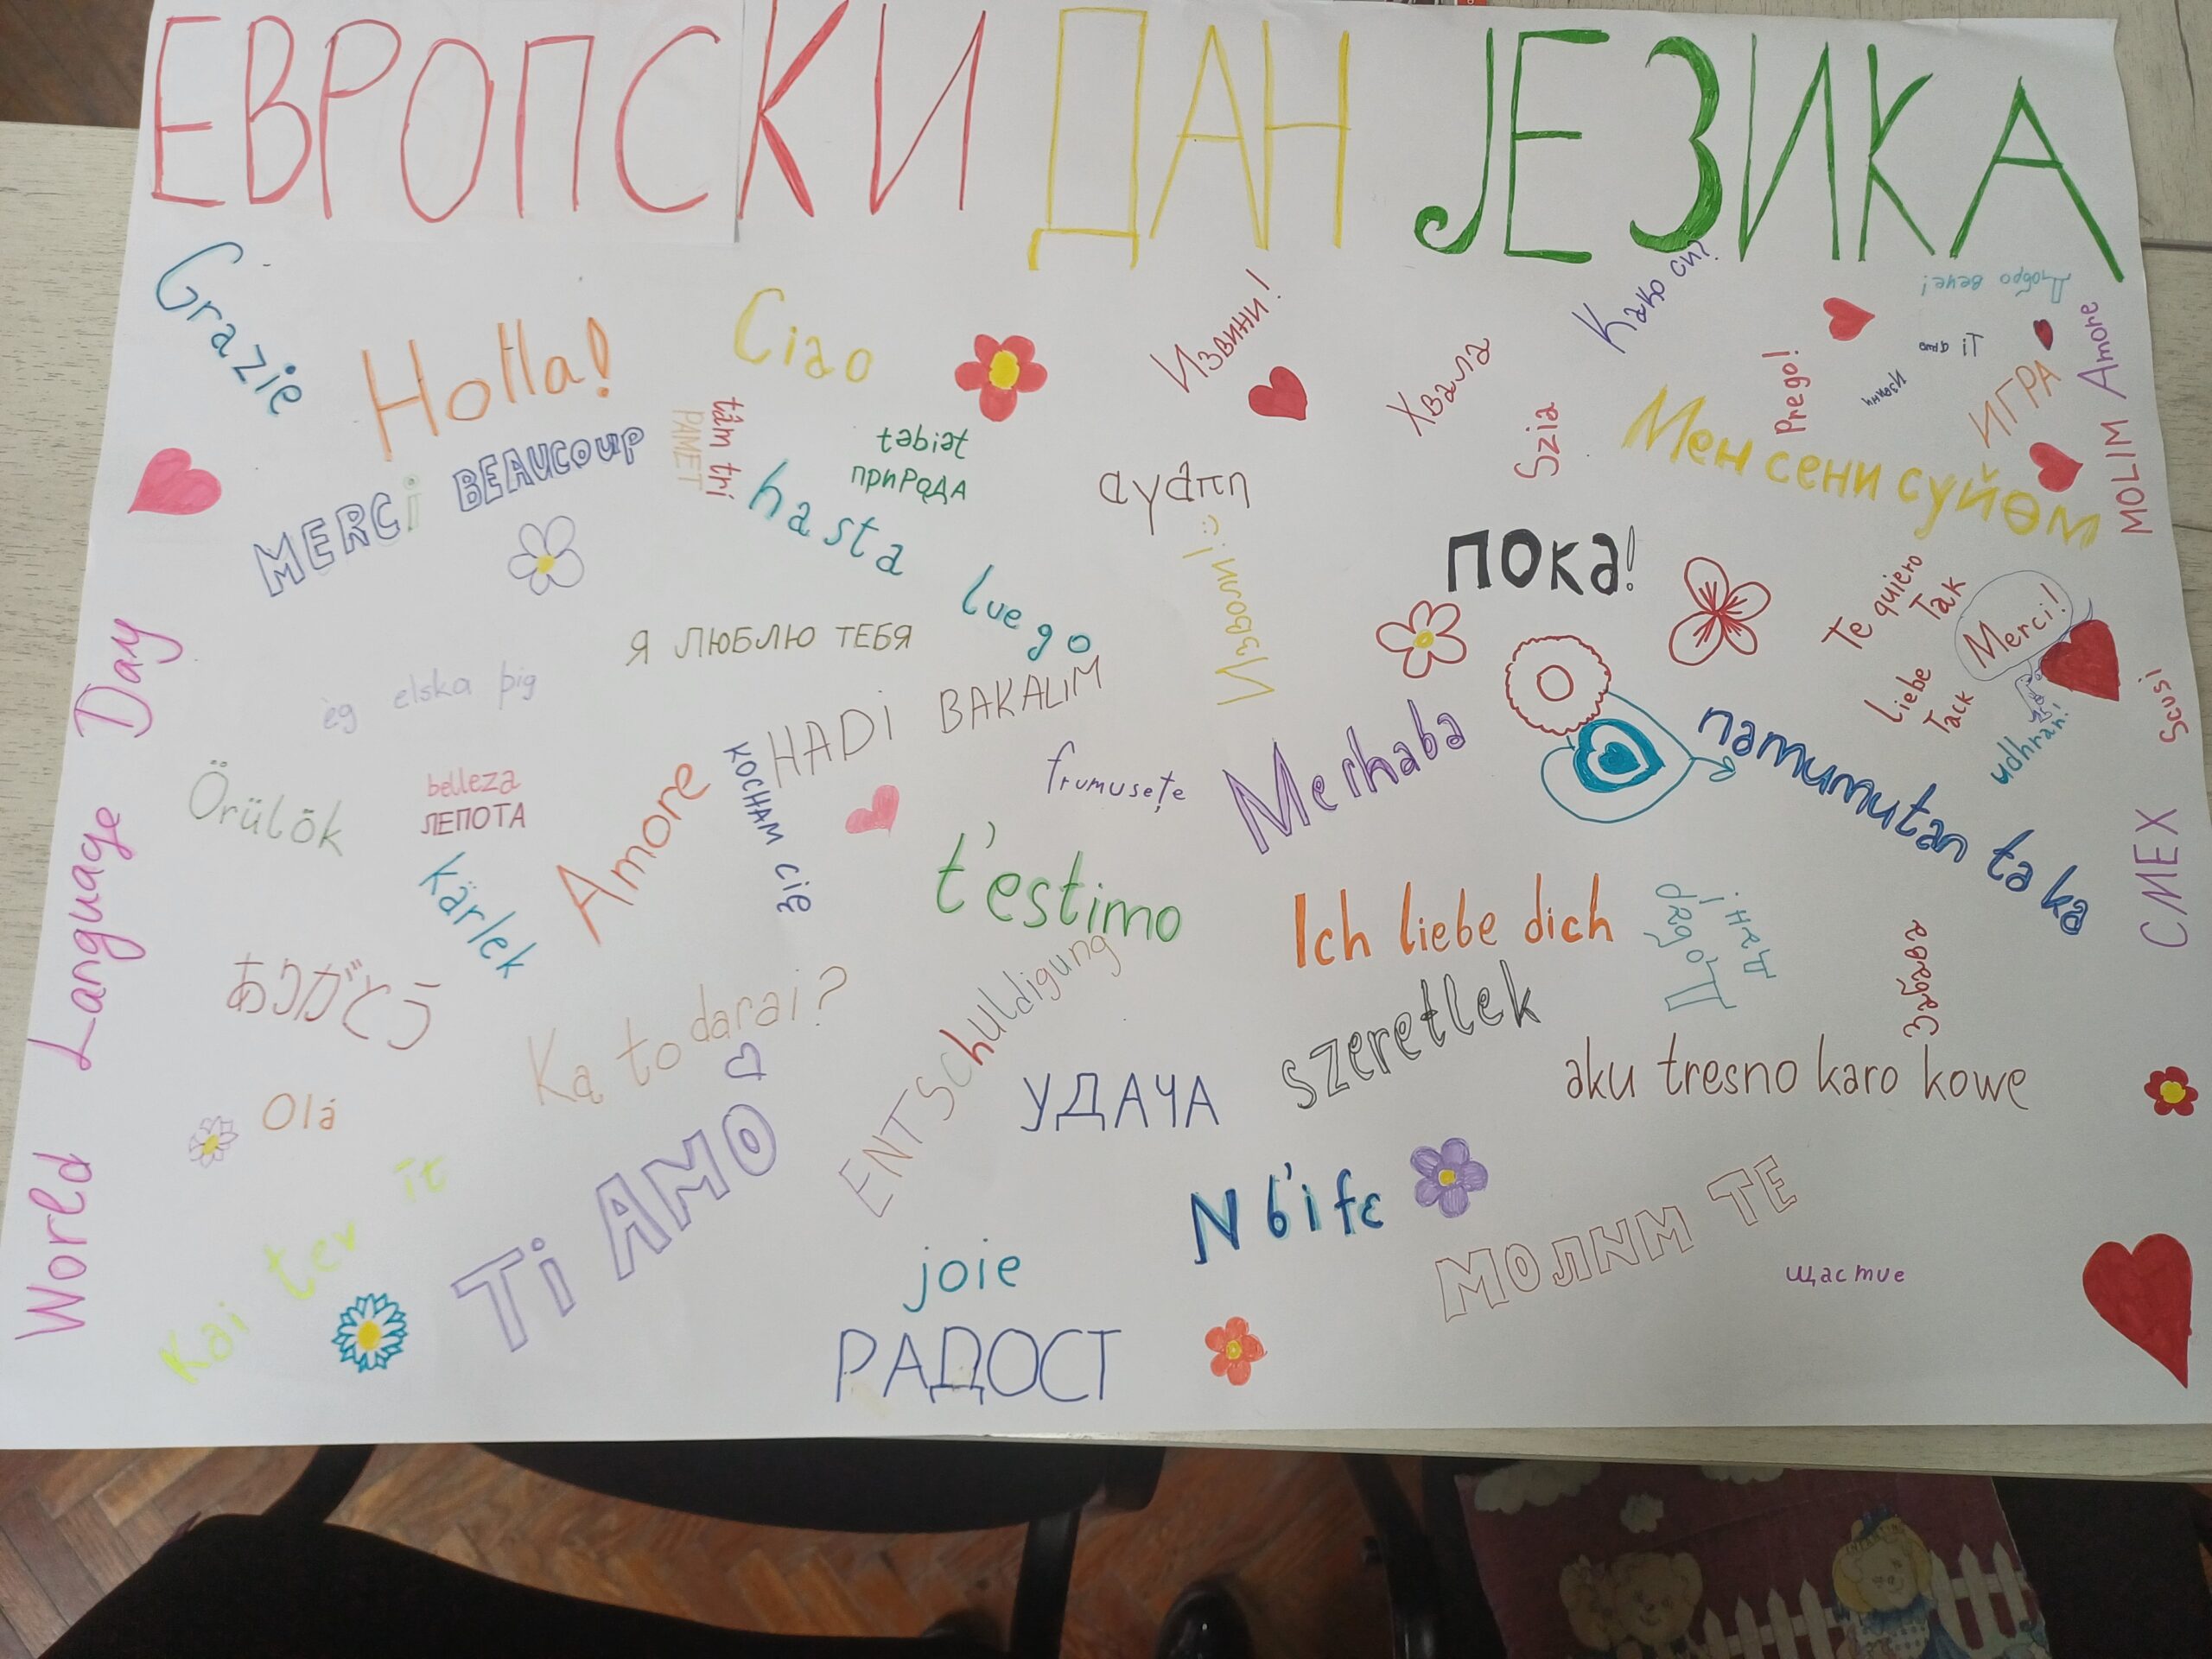 ЕВРОПСКИ ДАН ЈЕЗИКА
Grazie
Holla!
Ciao
Извини!
Како си?
Добро вече!
Хвала
Szia
Prego!
Ti amo
ИГРА
Amore
MOLIM
MERCi BEAUCOUP
tâm trí
PAMET
təbiət
ПРИРОДА
hasta luego
αγάπη
Мен сени сүйөм
пока!
Изволи! :)
Te quiero
Tak
Merci!
Liebe
Tack
udhrah!
Scusi
Я ЛЮБЛЮ ТЕБЯ
ég elska þig
HADİ BAKALIM
World Language Day
Örülök
belleza
ЛЕПОТА
Amore
KOCHAM CIĘ
frumusețe
Merhaba
namumutan ta ka
СМЕХ
kärlek
t'estimo
Ich liebe dich
Добар дан!
Забава
ありがとう
Ką to darai?
ENTSchuldigung
szeretlek
aku tresno karo kowe
Olá
УДАЧА
Kai ter it
Ti AMO
N b'i fɛ
МОЛИМ ТЕ
щастие
joie
РАДОСТ